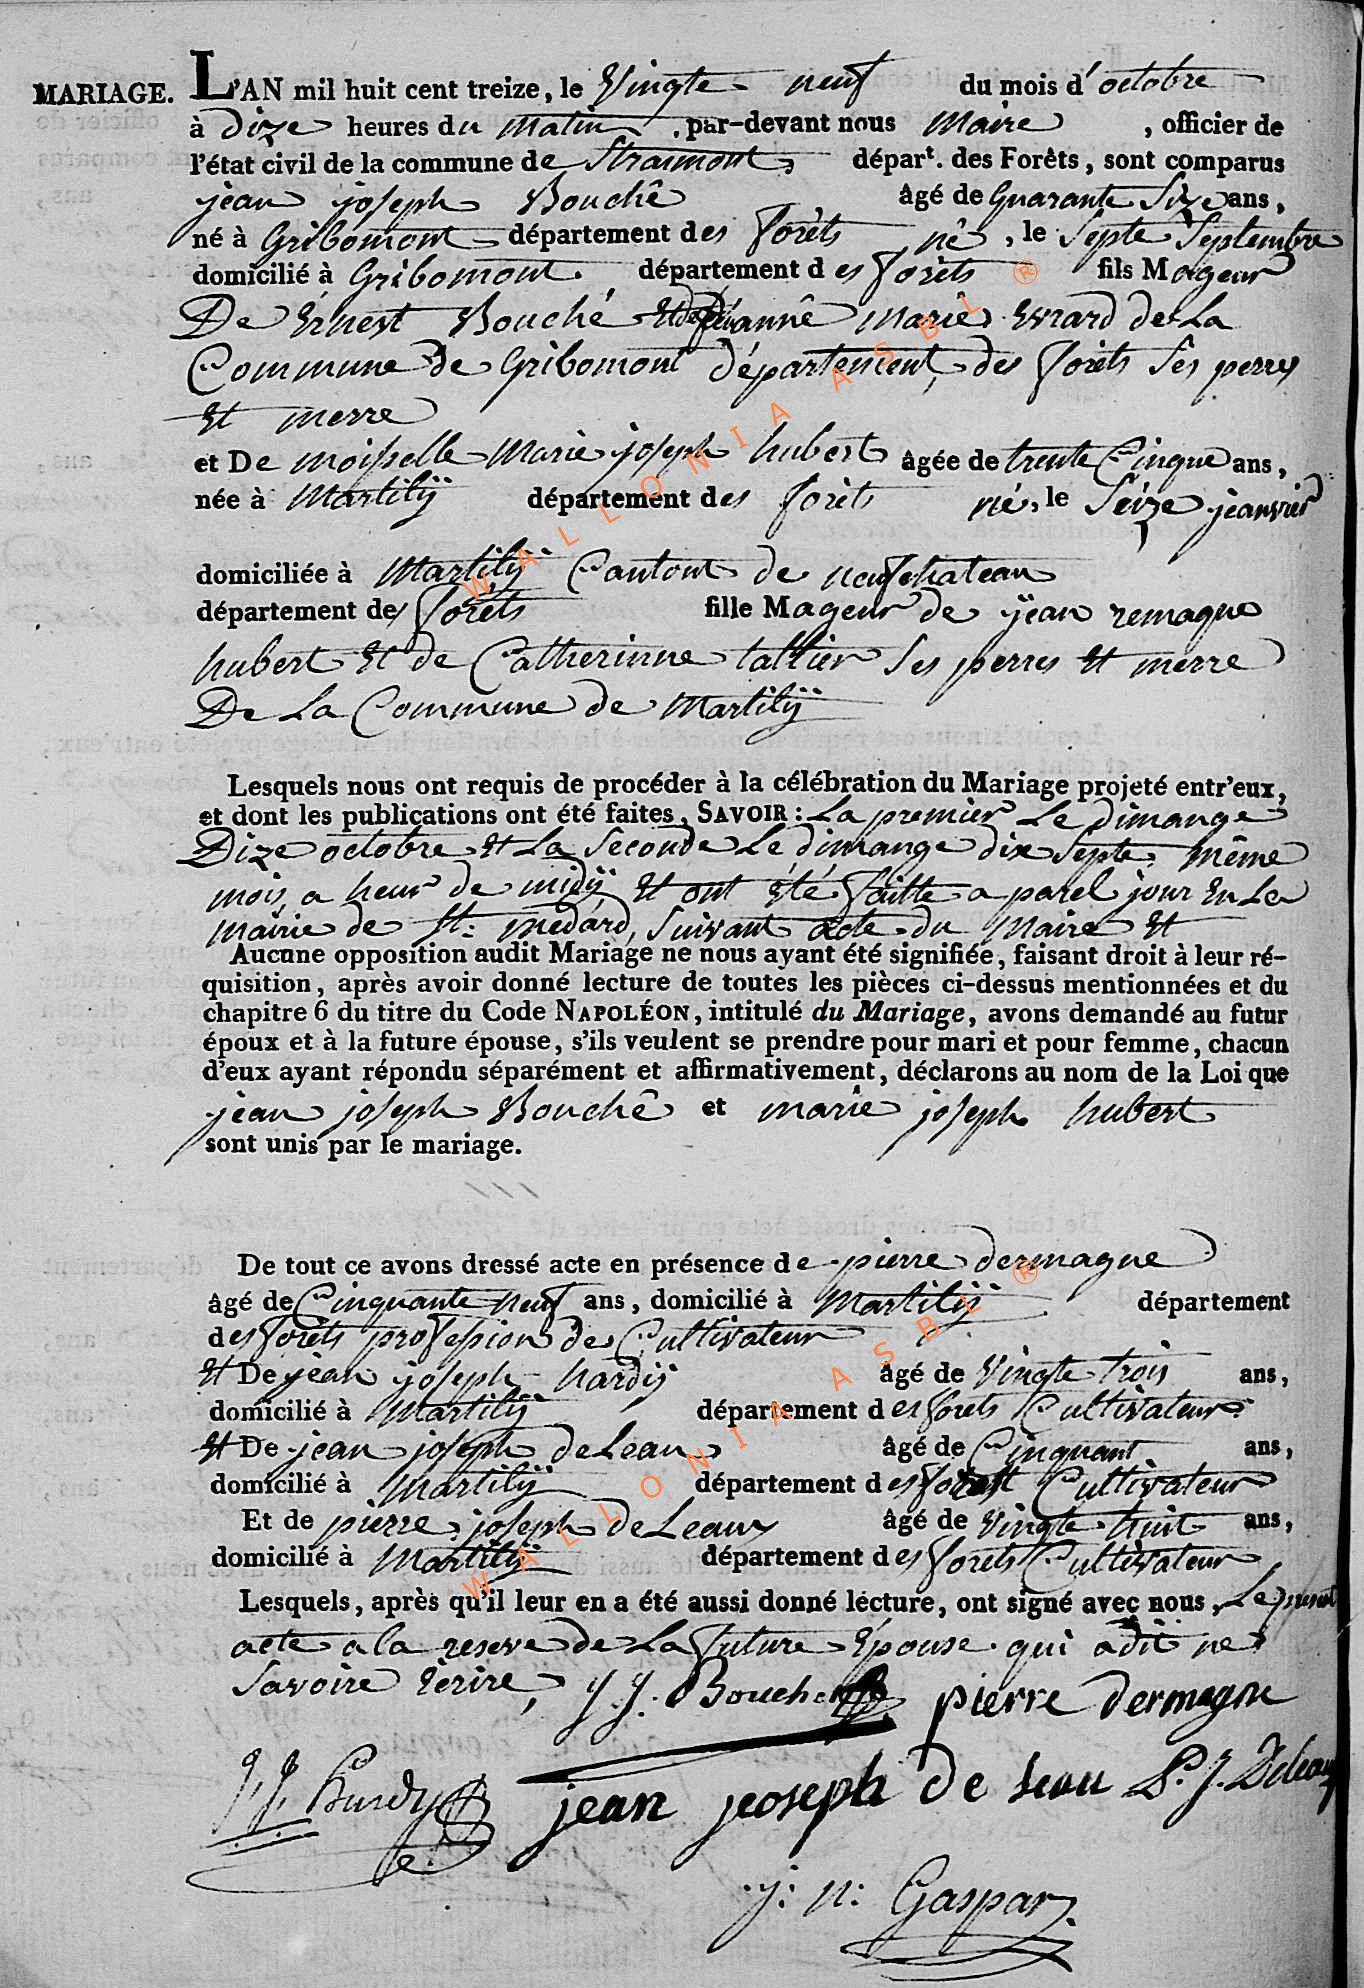 MARIAGE.
L'AN mil huit cent treize, le Vingte neuf du mois d'octobre
à Dize heures du Matin, par-devant nous Maire, officier de
l'état civil de la commune de Straimont, départ. des Forêts, sont comparus
jean joseph Bouchê âgé de Quarante Size ans,
né à Gribomont département des forêts né, le Septe Septembre
domicilié à Gribomont. département des forêts fils Mageur
De Ernest Bouché Et de jéannê Marie Evrard de La
Commune de Gribomont département, des forêts Ses perres
Et merre
et De moisselle Marie joseph hubert âgée de trente Cinque ans,
née à Martilÿ département des forêts né, le Seize jeanvier
domiciliée à Martilÿ Cantont de neufchateau
département des forêts fille Mageur de jean remaque
hubert Et de Catherinne tallier Ses perres Et merre
De La Commune de Martilÿ
Lesquels nous ont requis de procéder à la célébration du Mariage projeté entr'eux,
et dont les publications ont été faites, SAVOIR : La premier Le dimange
Dize octobre Et La Seconde Le dimange dix Septe, même
mois, a heur de midÿ Et ont été faitte a parel jour En La
Mairie de St: medard, Suivant acte du Maire Et
Aucune opposition audit Mariage ne nous ayant été signifiée, faisant droit à leur ré-
quisition, après avoir donné lecture de toutes les pièces ci-dessus mentionnées et du
chapitre 6 du titre du Code NAPOLÉON, intitulé du Mariage, avons demandé au futur
époux et à la future épouse, s'ils veulent se prendre pour mari et pour femme, chacun
d'eux ayant répondu séparément et affirmativement, déclarons au nom de la Loi que
jean joseph Bouchê et marie joseph hubert
sont unis par le mariage.
De tout ce avons dressé acte en présence de pierre dermagne
âgé de Cinquante neuf ans, domicilié à Martilÿ département
des forêts profession de Cultivateur
Et De jean joseph hardÿ âgé de Vingte trois ans,
domicilié à Martilÿ département des forets Cultivateur
Et De jean joseph deLeau âgé de Cinquant ans,
domicilié à Martilÿ département des forest Cultivateur
Et de pierre joseph deLeaux âgé de Vingte huit ans,
domicilié à Martilÿ département des forets Cultivateur
Lesquels, après qu'il leur en a été aussi donné lecture, ont signé avec nous, Le present
acte a la reserve de La future Epouse qui a dit ne
Savoire Ecrire, J. J. Bouche pierre dermagne
J. J. Hardy jean joseph de leau P. J. Deleaux
j: n: Gaspar
WALLONIA ASBL ®
WALLONIA ASBL ®